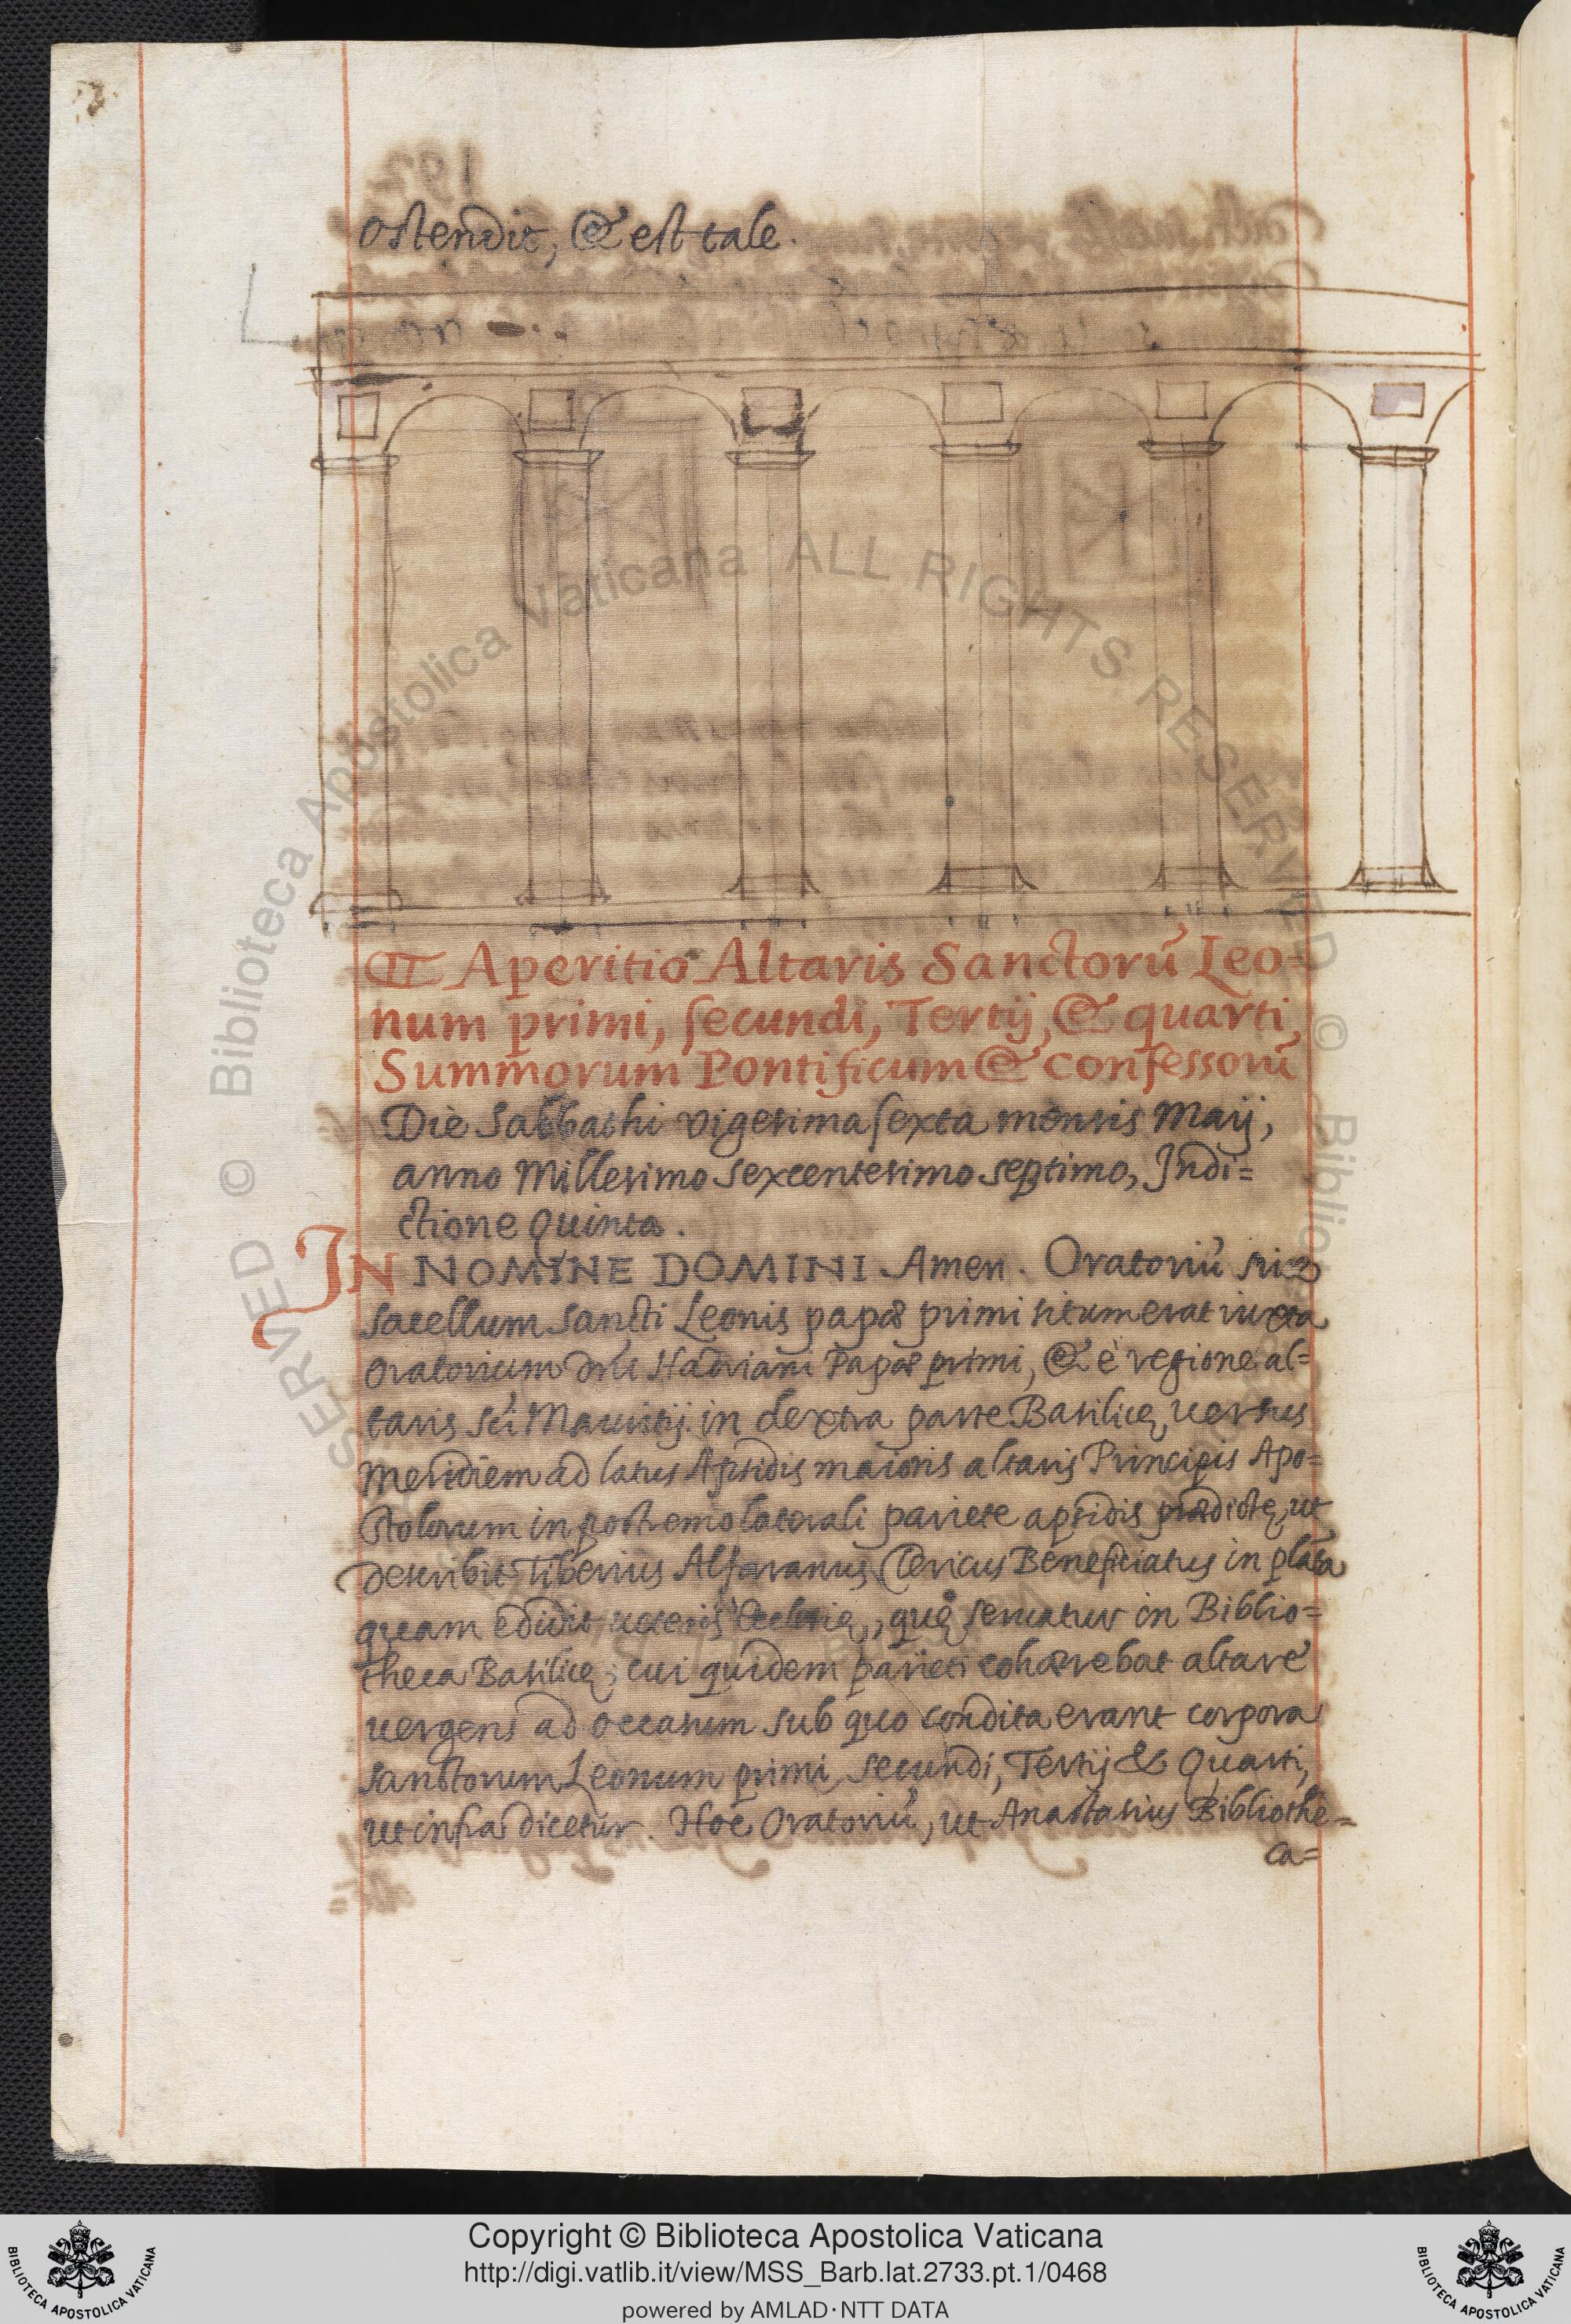 ostendit, & est tale.
Aperitio Altaris Sanctorū Leo=
num primi, secundi, Tertij, & quarti,
Summorum Pontificum & Confessorū
Die Sabbathi vigesima sexta mensis Maij,
anno Millesimo sexcentesimo septimo, Indi=
ctione quinta.
IN NOMINE DOMINI Amen. Oratoriū
sacellum sancti Leonis papæ primi situm erat iuxta
oratorium Hadriani Papæ primi, & è regione al=
taris Sci Mauritij in dextra parte Basilicę uersus
Meridiem ad latus Apsidis maioris altaris Principis Apo=
stolorum in postremo laterali pariete apsidis prædictę, ut
describit Tiberius Alfaranus Clericus Beneficiatus in
quam edidit ueteris Ecclesię, quę seruatur in Biblio=
theca Basilicę; cui quidem parieti cohærebat altare
uergens ad occasum sub quo condita erant corpora
sanctorum Leonum primi, secundi, Tertij & Quarti,
ut infra dicetur. Hoc Oratoriū, ut Anastasius Bibliothe=
ca=
© Biblioteca Apostolica Vaticana ALL RIGHTS RESERVED
Copyright © Biblioteca Apostolica Vaticana
http://digi.vatlib.it/view/MSS_Barb.lat.2733.pt.1/0468
powered by AMLAD·NTT DATA
BIBLIOTECA APOSTOLICA VATICANA
BIBLIOTECA APOSTOLICA VATICANA